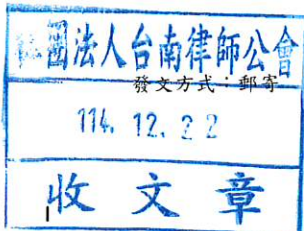 團法人台南律師公會
發文方式：郵寄
114. 12. 22
收文章